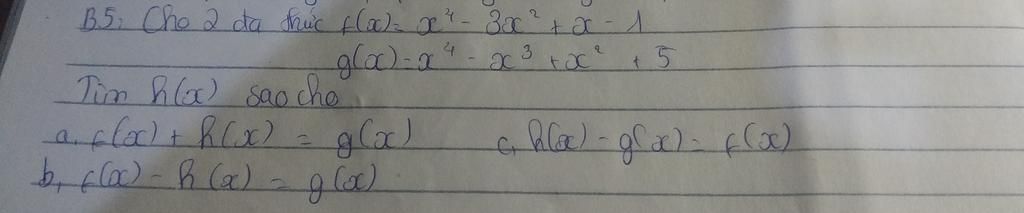 B5: Cho 2 đa thức f(x) = x⁴ - 3x² + x - 1
g(x) = x⁴ - x³ + x² + 5
Tìm h(x) sao cho
a, f(x) + h(x) = g(x) c, h(x) - g(x) = f(x)
b, f(x) - h(x) = g(x)